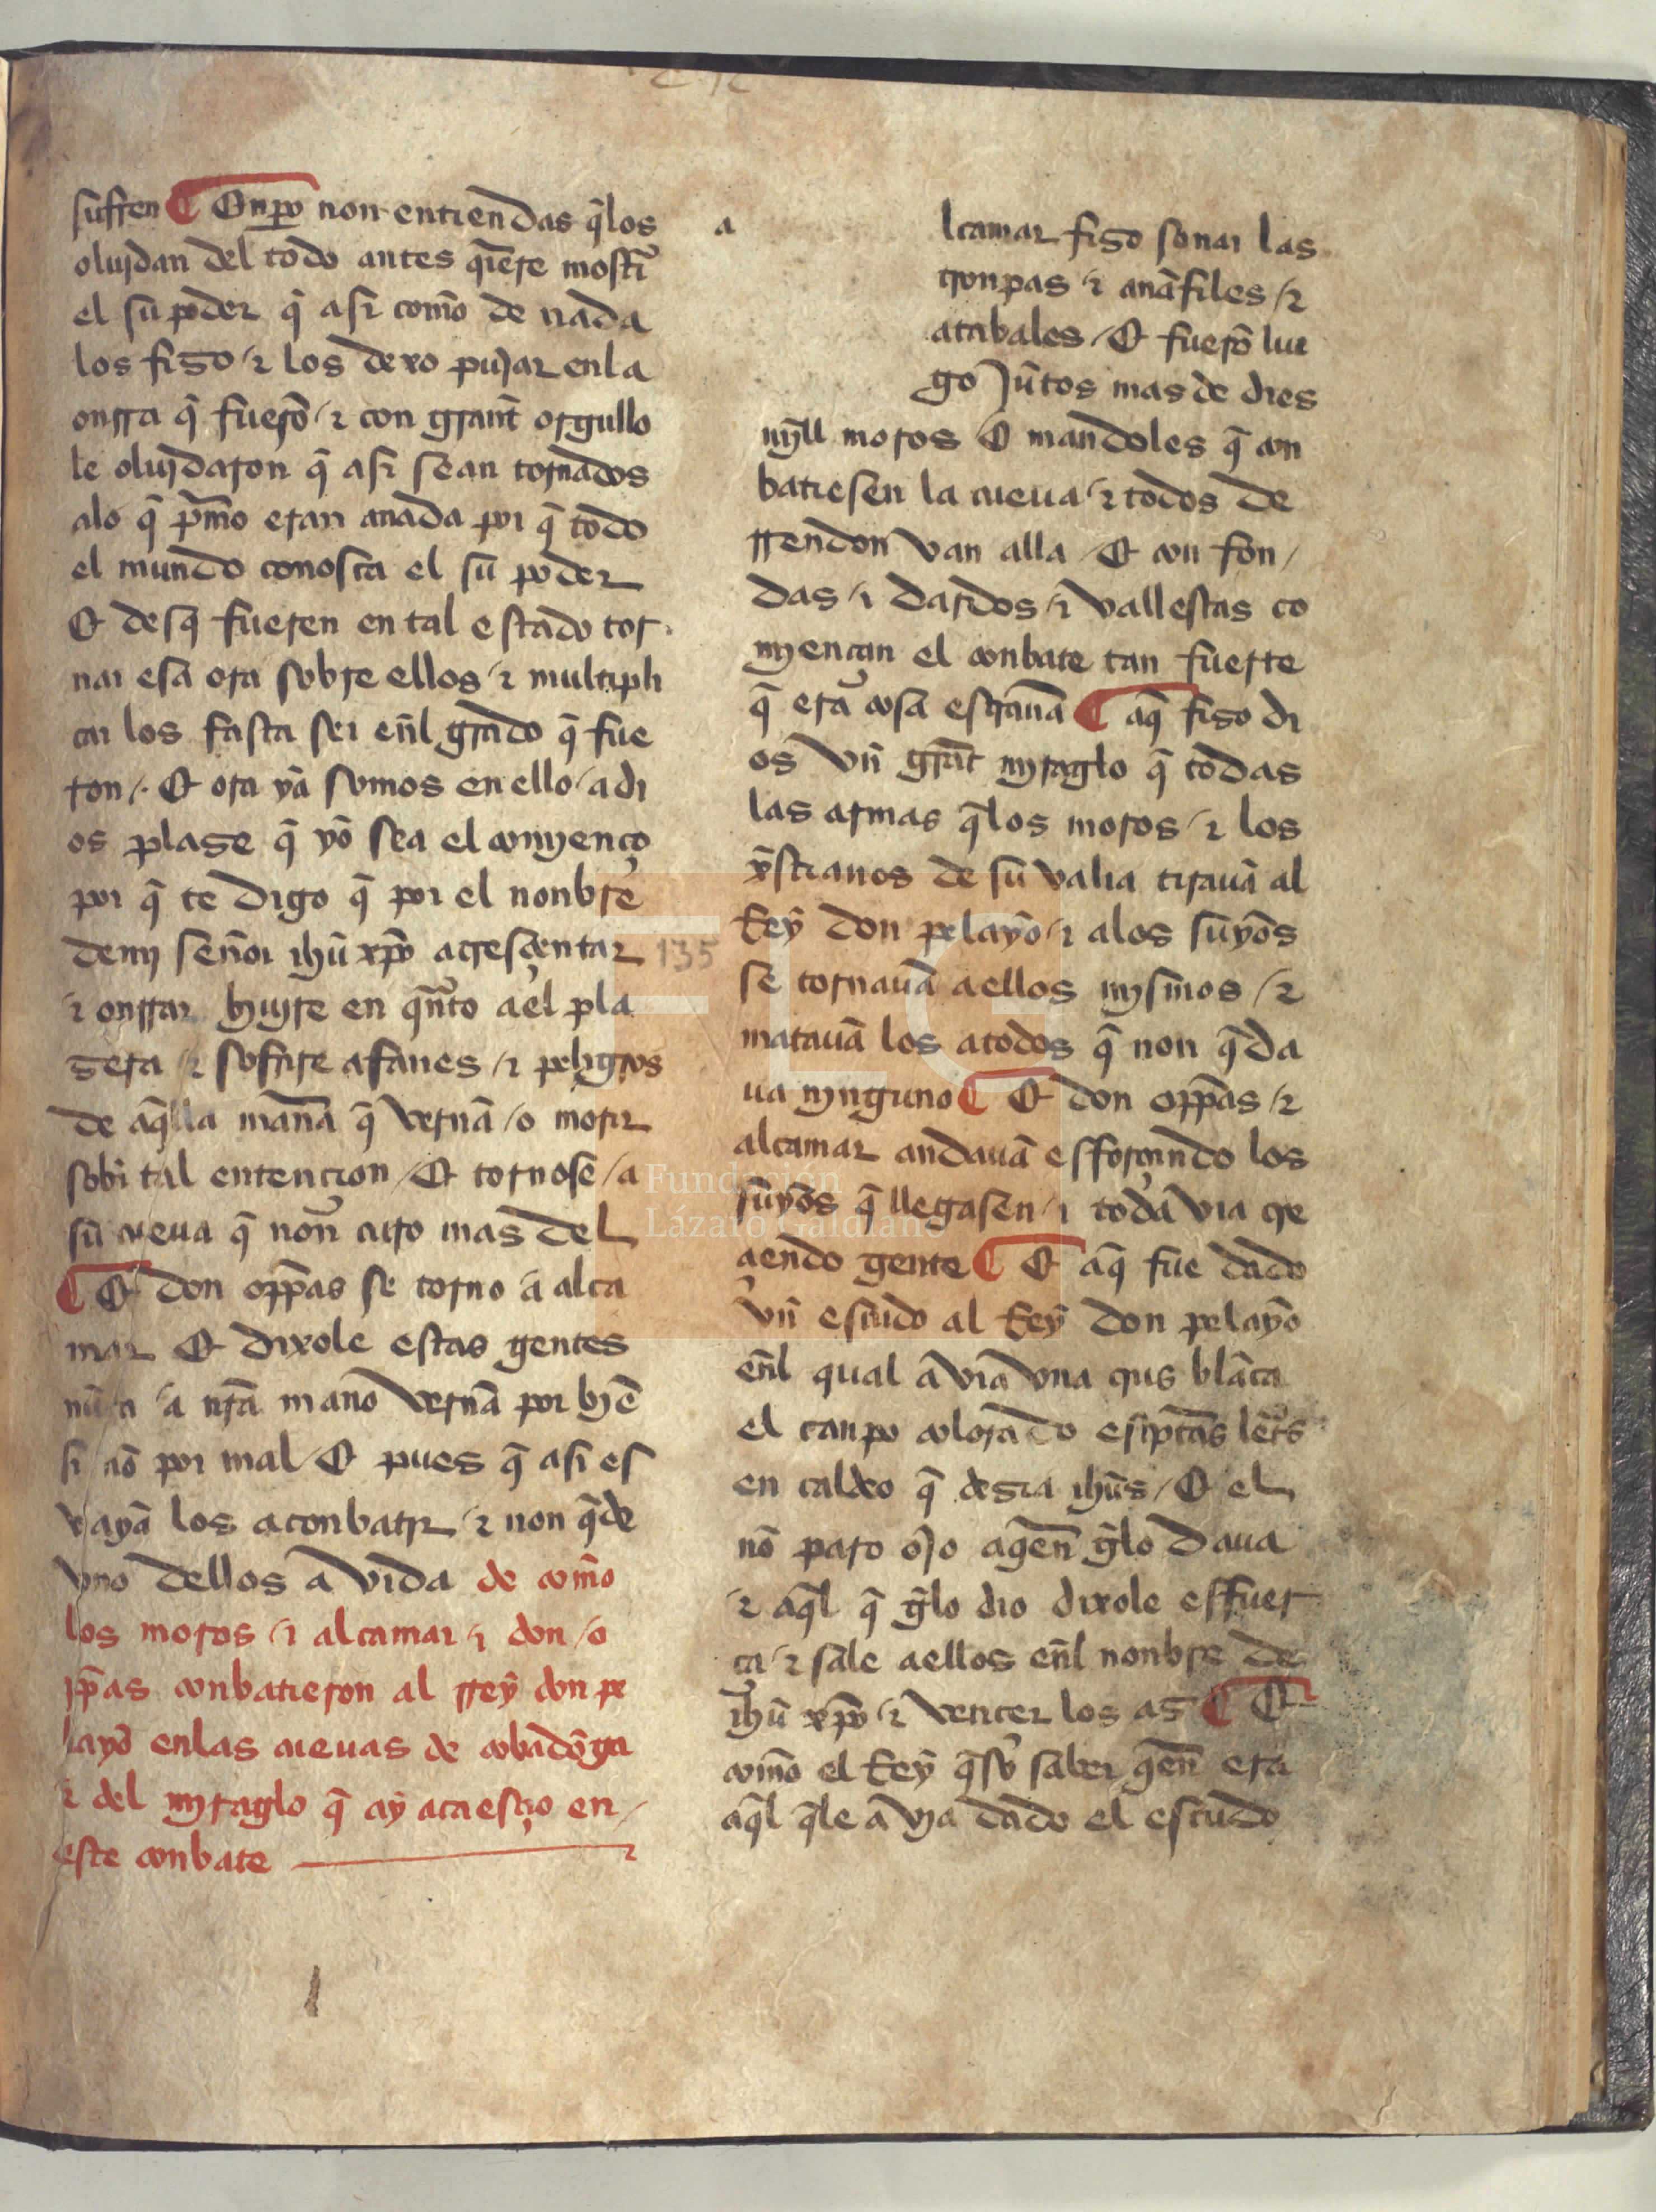 suffren ¶ Enpo non entiendas q̃los
oluidan del todo antes q̃ere mostr̃
el su poder q̃ asi com̃o de nada
los fiso ⁊ los dexo pujar enla
onrra q̃ fuerõ ⁊ con grant̃ orgullo
le oluidaron q̃ asi sean tornados
alo q̃ pr̃mo eran anada por q̃ todo
el mundo conosca el su poder
Et desq̃ fueren en tal estado tor
nar esa ora sobre ellos ⁊ multipli
car los fasta ser eñl grado q̃ fue
ron /. Et ora ya somos en ello / a di
os plase q̃ yo sea el comienço
por q̃ te digo q̃ por el nonbre
demj señor ihũ xp̃o acresçentar
⁊ onrrar biujre en qñto a el pla
sera ⁊ sofrire afanes ⁊ peligros
de aq̃lla mãna q̃ vernã / o morir
sobr̃ tal entencion / Et tornose / a
su cueua q̃ non curo mas del
¶ Et don opp̃as se torno a alca
mar Et dixole estas gentes
nũca a nr̃a mano vernã por biẽ
si nõ por mal / Et pues q̃ asi es
vayã los aconbatir ⁊ non q̃de
vno dellos a vida de com̃o
los moros ⁊ alcamar ⁊ don / o
pp̃as conbatieron al rrey don pe
layo enlas cueuas de cobadõga
⁊ del miraglo q̃ ay acaesçio en /
este conbate
a lcamar fiso sonar las
tronpas ⁊ anãfiles / ⁊
atabales / Et fuerõ lue
go jũtos mas de dies
mj̃ll moros Et mandoles q̃ con
batiesen la cueua ⁊ todos de
rrendon van alla / Et con fon /
das / ⁊ dardos / ⁊ vallestas co
mjençan el conbate tan fuerte
q̃ era cosa estrañã ¶ aq̃ fiso di
os vñ grãt mjraglo q̃ todas
las armas q̃los moros / ⁊ los
xp̃stianos de su valia tirauã al
Rey don pelayo / ⁊ alos suyos
se tornauã aellos mjsmos / ⁊
matauã los atodos q̃ non q̃da
ua njnguno ¶ Et don opp̃as / ⁊
alcamar andauã esforçando los
suyos q̃ llegasen / ⁊ toda via cre
çiendo gente ¶ Et aq̃ fue dado
vñ escudo al Rey don pelayo
eñl qual a via vna crus blãca
el canpo colorado escriptas letrãs
en caldeo q̃ desia ihũs / Et el
nõ paro ojo aq̃en g̃lo daua
⁊ aq̃l q̃ g̃lo dio dixole effuer
ça / ⁊ sale aellos eñl nonbre de
ihũ xp̃o / ⁊ vencer los as ¶ Et
com̃o el Rey q̃so saber q̃en era
aq̃l q̃le a vja dado el escudo
135
Fundación
Lázaro Galdiano